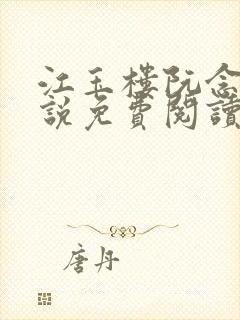 江玉樓阮念
說免費閱讀
唐丹